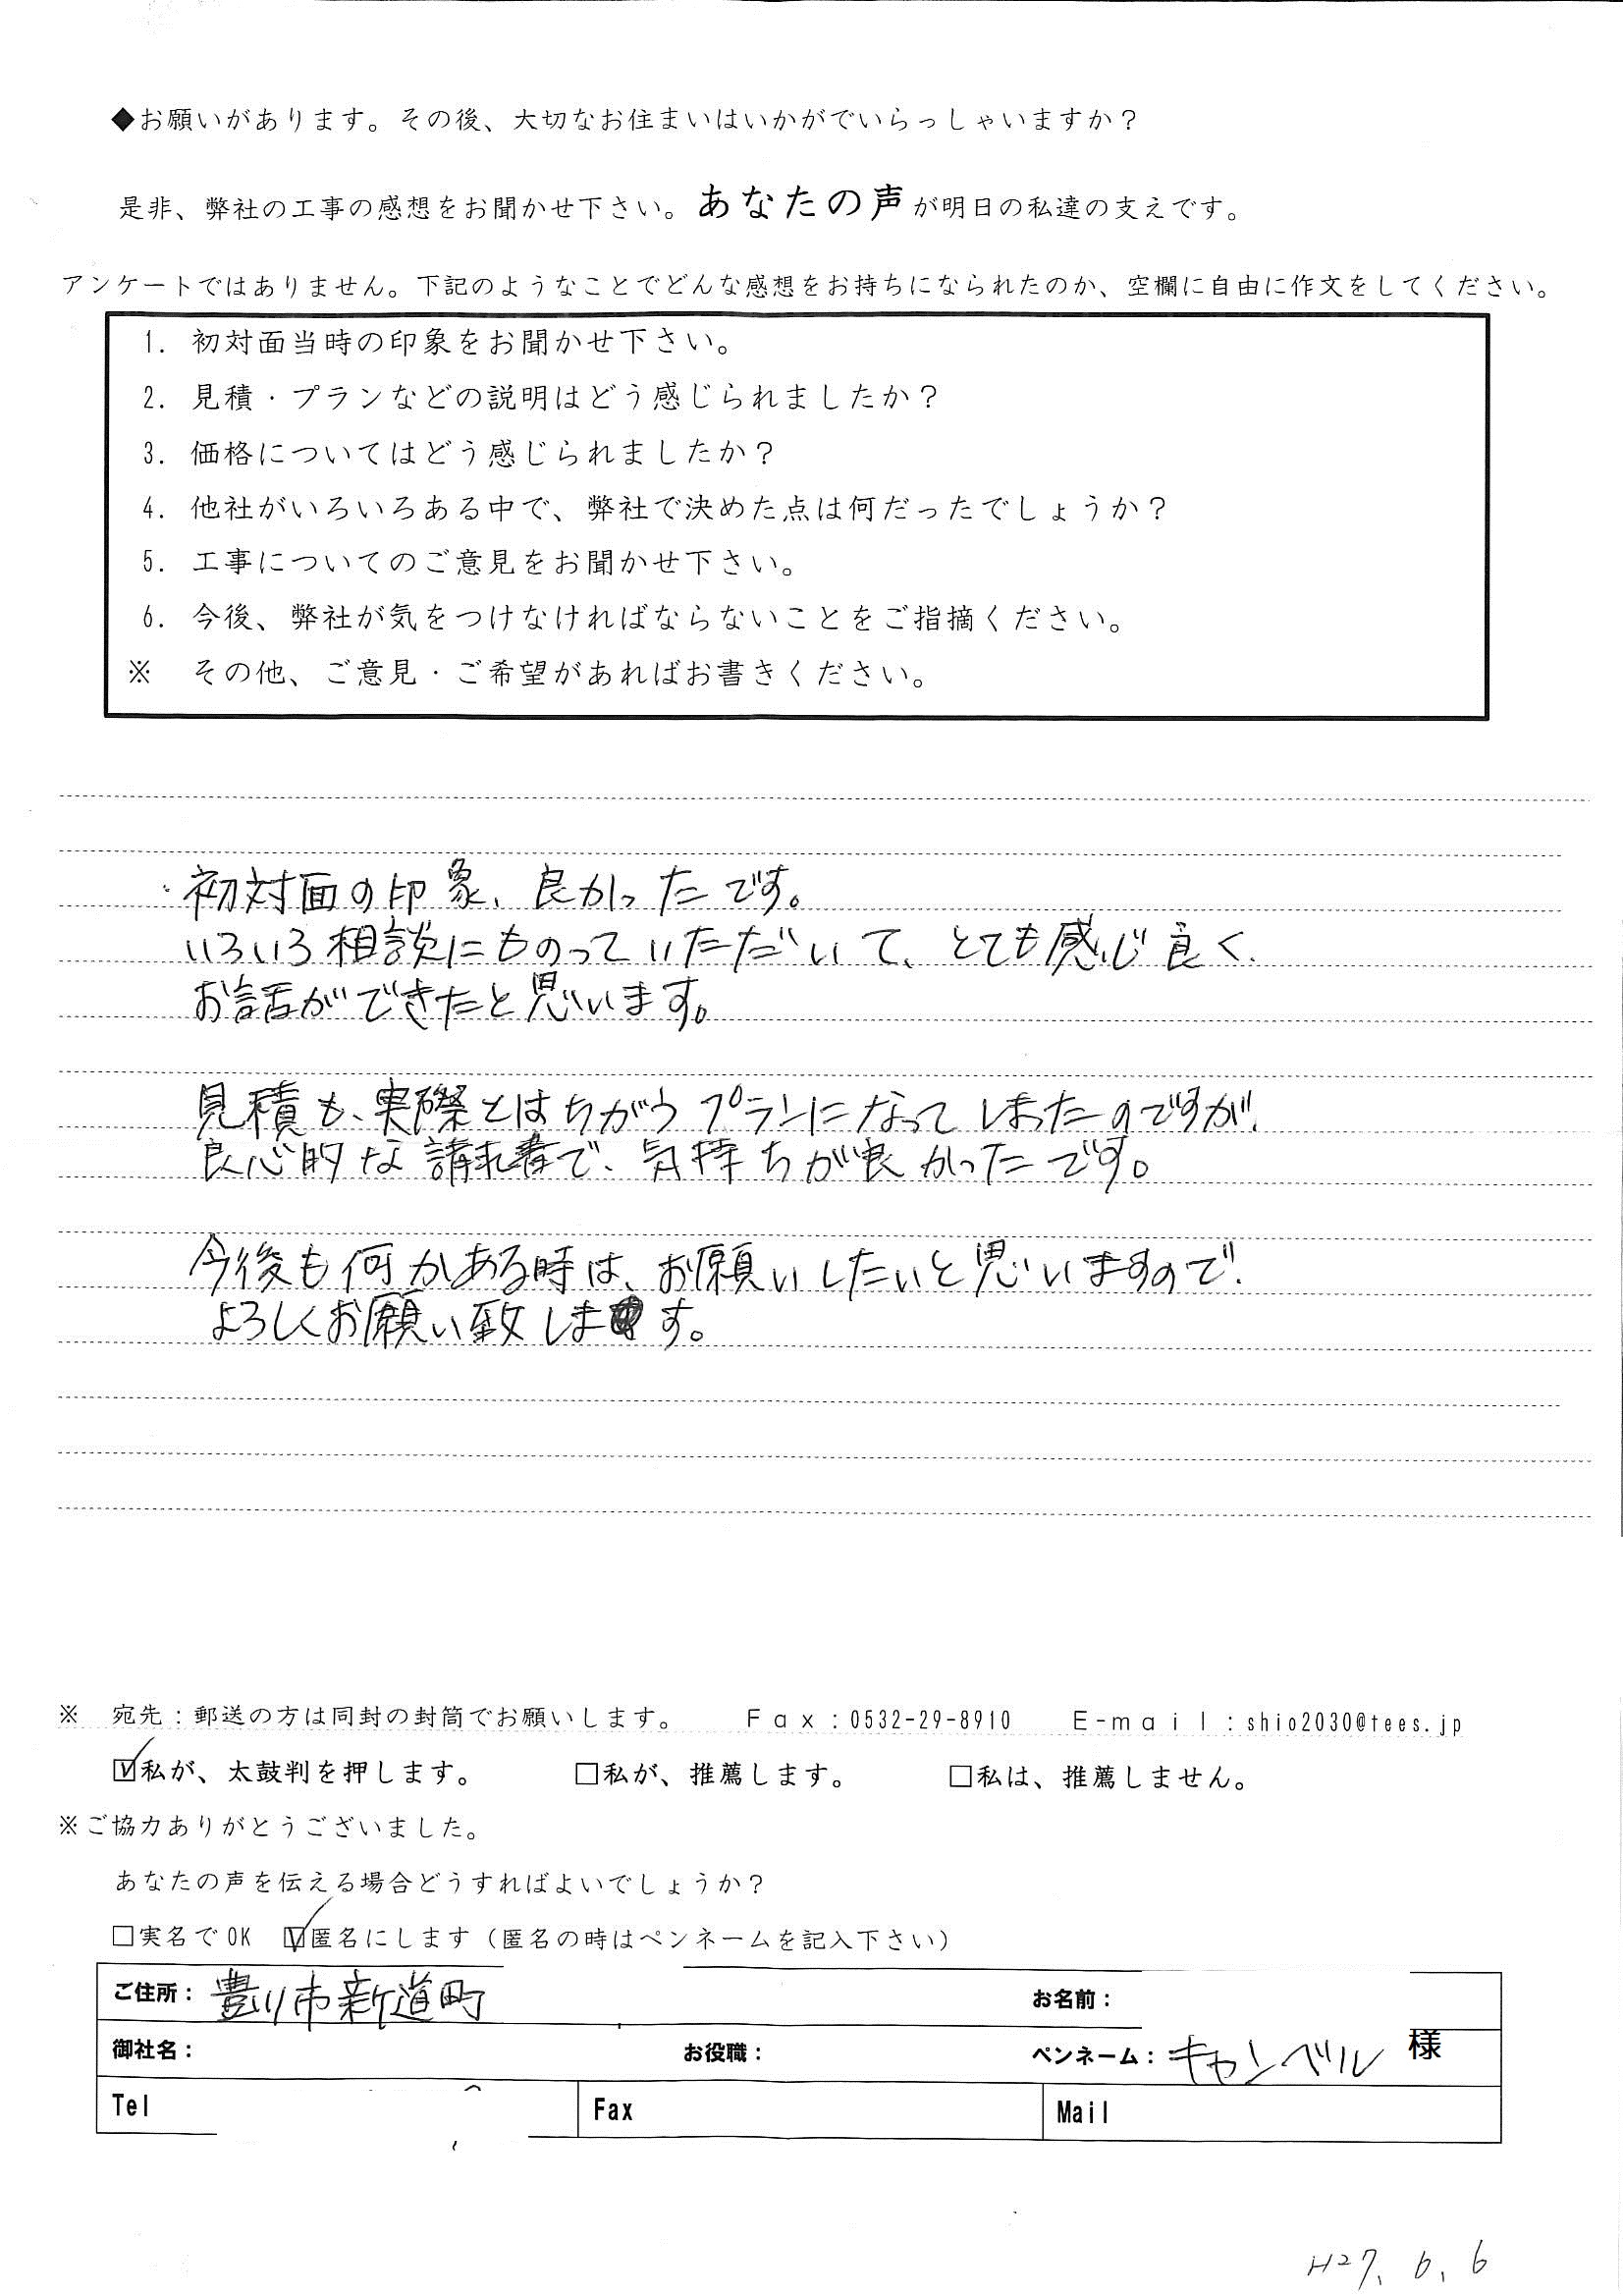 ◆お願いがあります。その後、大切なお住まいはいかがでいらっしゃいますか？
是非、弊社の工事の感想をお聞かせ下さい。あなたの声が明日の私達の支えです。
アンケートではありません。下記のようなことでどんな感想をお持ちになられたのか、空欄に自由に作文をしてください。
1. 初対面当時の印象をお聞かせ下さい。
2. 見積・プランなどの説明はどう感じられましたか？
3. 価格についてはどう感じられましたか？
4. 他社がいろいろある中で、弊社で決めた点は何だったでしょうか？
5. 工事についてのご意見をお聞かせ下さい。
6. 今後、弊社が気をつけなければならないことをご指摘ください。
※ その他、ご意見・ご希望があればお書きください。
初対面の印象、良かったです。
いろいろ相談にものっていただいて、とても感じ良く、
お話ができたと思います。
見積も、実際とはちがうプランになってしまったのですが、
良心的な請求書で、気持ちが良かったです。
今後も何かある時は、お願いしたいと思いますので、
よろしくお願い致します。
※ 宛先：郵送の方は同封の封筒でお願いします。 Fax：0532-29-8910 E-mail：shio2030@tees.jp
☑私が、太鼓判を押します。 □私が、推薦します。 □私は、推薦しません。
※ご協力ありがとうございました。
あなたの声を伝える場合どうすればよいでしょうか？
□実名でOK ☑匿名にします（匿名の時はペンネームを記入下さい）
ご住所：豊川市新道町 お名前：
御社名： お役職： ペンネーム：キャンベル 様
Tel Fax Mail
H27. 6. 6